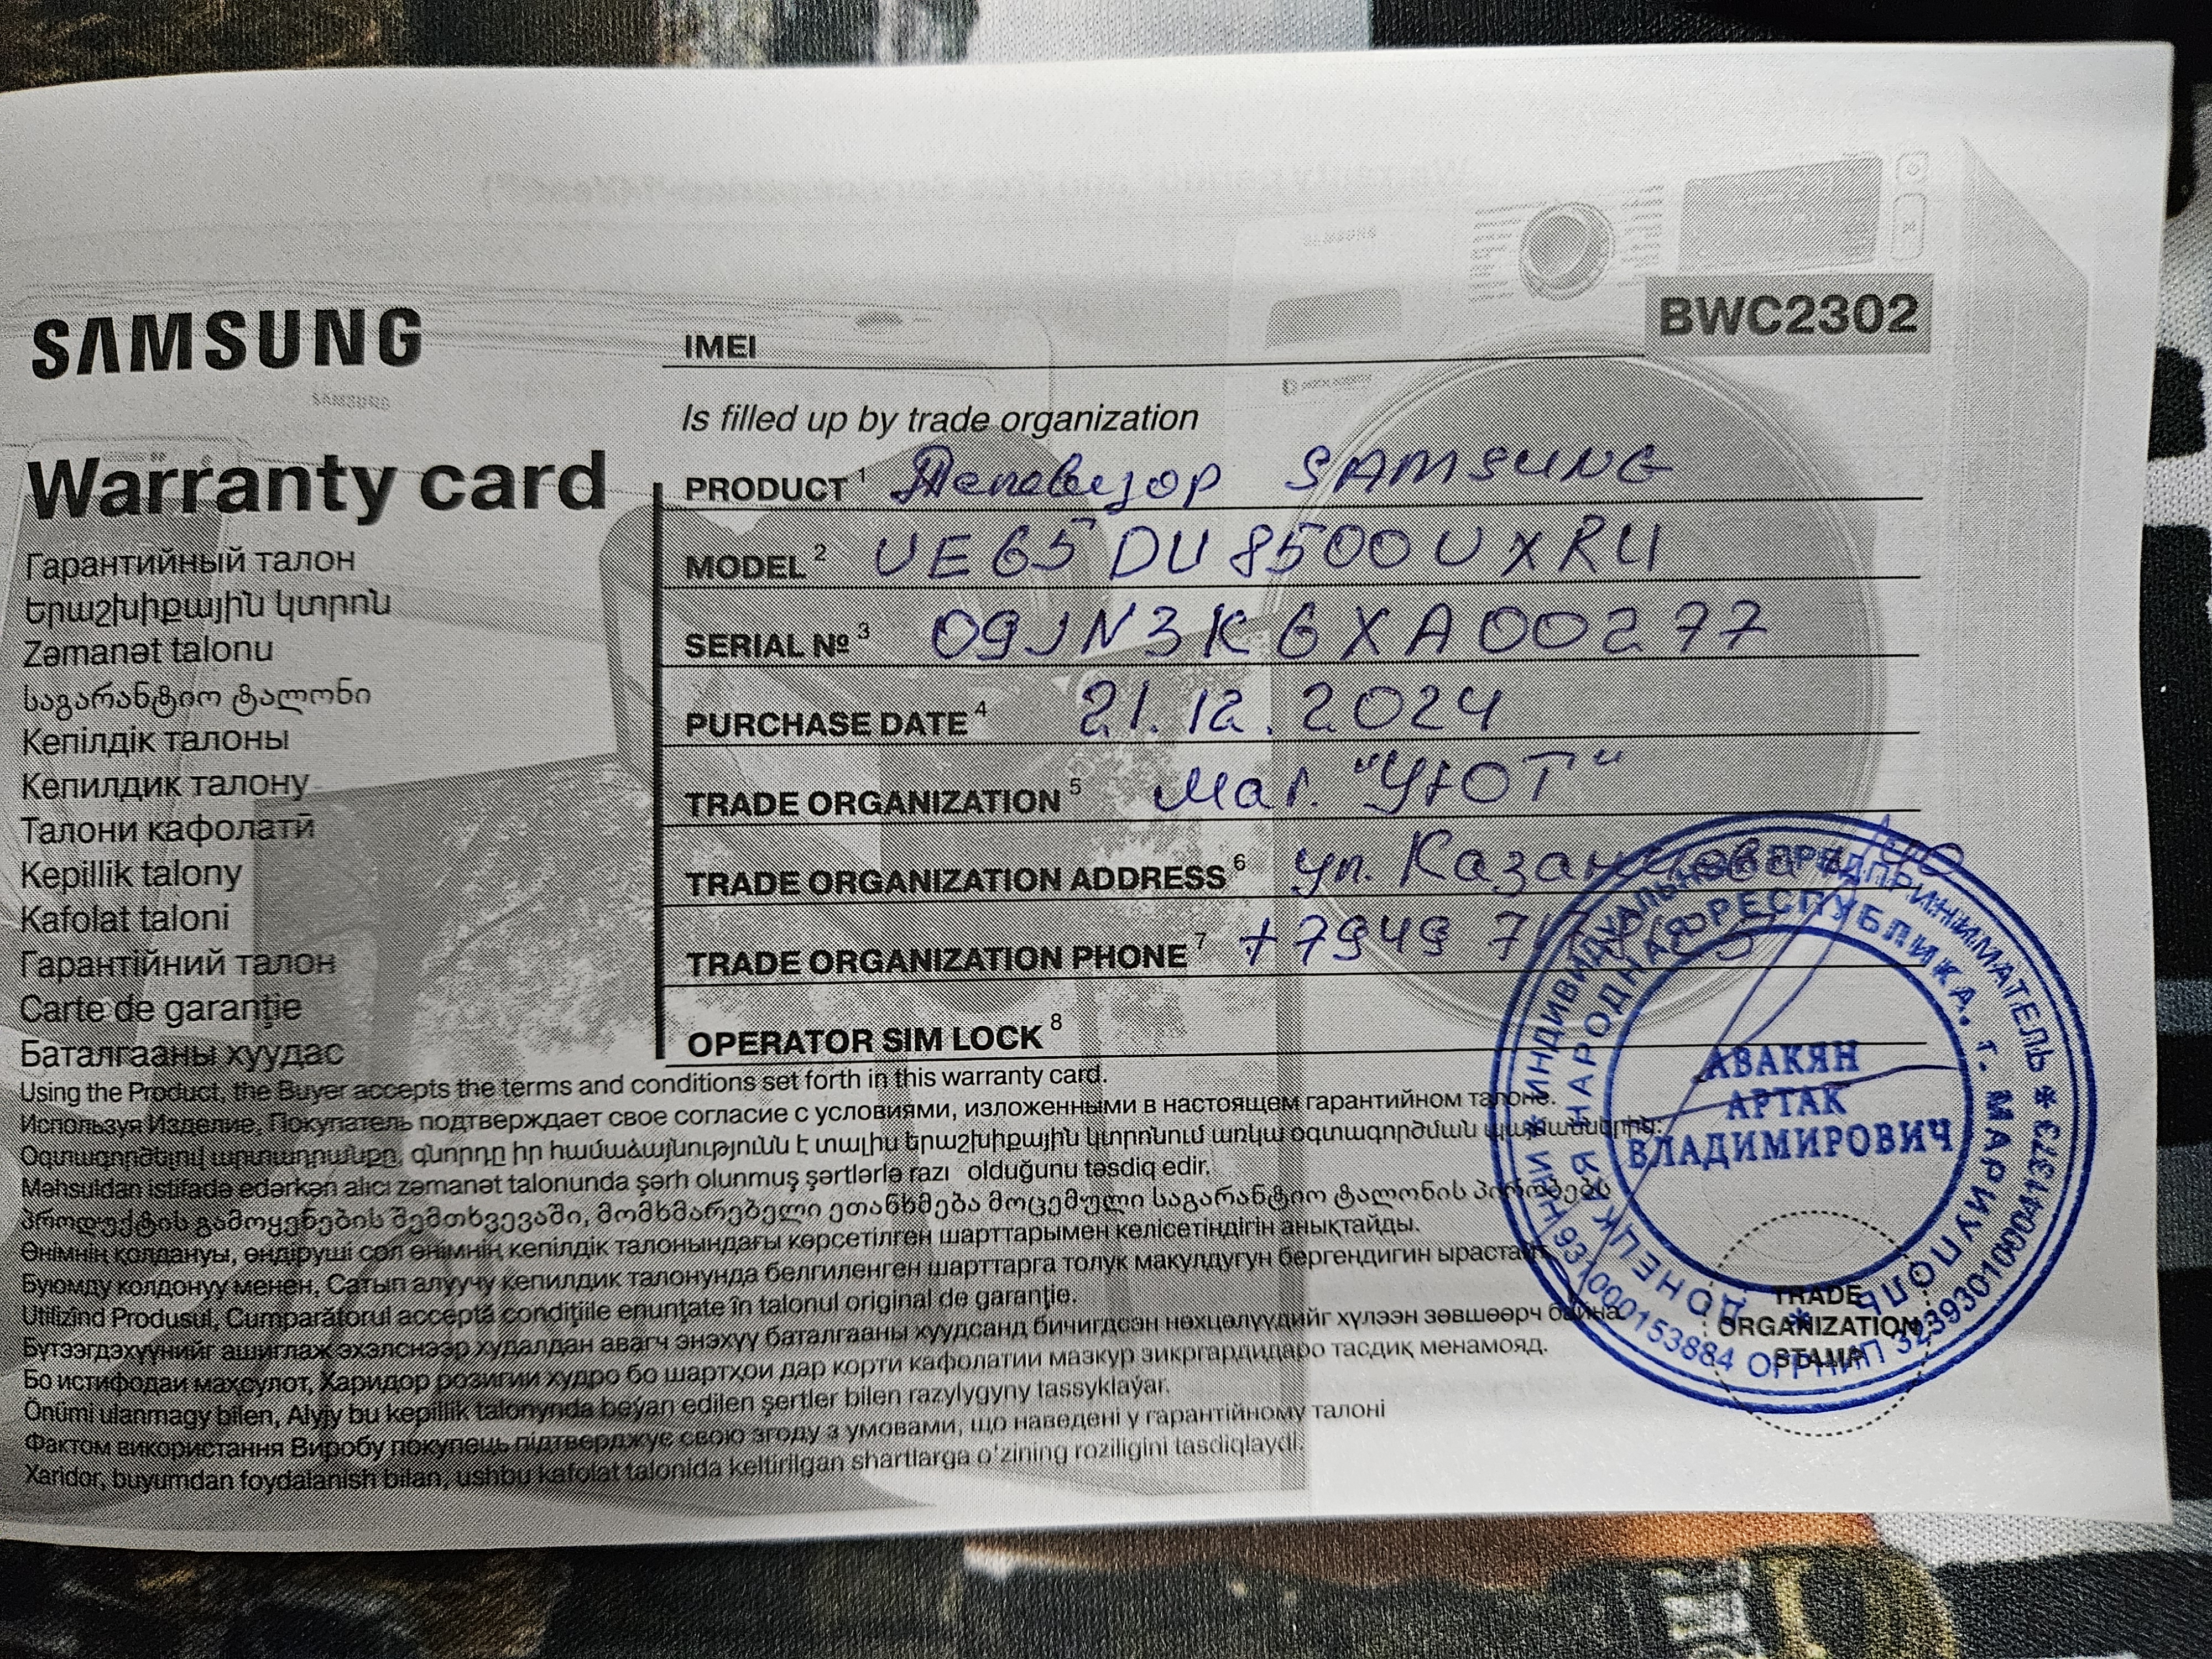 SAMSUNG
Warranty card
Гарантийный талон
Երաշխիքային կտրոն
Zəmanət talonu
საგარანტიო ტალონი
Кепілдік талоны
Кепилдик талону
Талони кафолатӣ
Kepillik talony
Kafolat taloni
Гарантійний талон
Carte de garanţie
Баталгааны хуудас
IMEI
BWC2302
Is filled up by trade organization
PRODUCT 1 Телевизор SAMSUNG
MODEL 2 UE65DU8500UXRU
SERIAL № 3 09JN3K6XA00277
PURCHASE DATE 4 21.12.2024
TRADE ORGANIZATION 5 маг. "УЮТ"
TRADE ORGANIZATION ADDRESS 6 ул.
TRADE ORGANIZATION PHONE 7 +7949
OPERATOR SIM LOCK 8
Using the Product, the Buyer accepts the terms and conditions set forth in this warranty card.
Используя Изделие, Покупатель подтверждает свое согласие с условиями, изложенными в настоящем гарантийном талоне.
Օգտագործելով արտադրանքը, գնորդը իր համաձայնությունն է տալիս երաշխիքային կտրոնում առկա օգտագործման պայմաններին:
Məhsuldan istifadə edərkən alıcı zəmanət talonunda şərh olunmuş şərtlərlə razı olduğunu təsdiq edir.
პროდუქტის გამოყენების შემთხვევაში, მომხმარებელი ეთანხმება მოცემული საგარანტიო ტალონის პირობებს
Өнімнің қолдануы, өндіруші сол өнімнің кепілдік талонындағы көрсетілген шарттарымен келісетіндігін анықтайды.
Буюмду колдонуу менен, Сатып алуучу кепилдик талонунда белгиленген шарттарга толук макулдугун бергендигин ырастайт.
Utilizînd Produsul, Cumparătorul acceptă condiţiile enunţate în talonul original de garanţie.
Бүтээгдэхүүнийг ашиглаж эхэлснээр худалдан авагч энэхүү баталгааны хуудсанд бичигдсэн нөхцөлүүдийг хүлээн зөвшөөрч байна.
Бо истифодаи маҳсулот, Харидор розигии худро бо шартҳои дар корти кафолатии мазкур зикргардидаро тасдиқ менамояд.
Önümi ulanmagy bilen, Alyjy bu kepillik talonynda beýan edilen şertler bilen razylygyny tassyklaýar.
Фактом використання Виробу покупець підтверджує свою згоду з умовами, що наведені у гарантійному талоні
Xaridor, buyumdan foydalanish bilan, ushbu kafolat talonida keltirilgan shartlarga o'zining roziligini tasdiqlaydi.
ИНДИВИДУАЛЬНЫЙ ПРЕДПРИНИМАТЕЛЬ * ОГРНИП 323930100041373 * ИНН 931000153884
ДОНЕЦКАЯ НАРОДНАЯ РЕСПУБЛИКА, г. МАРИУПОЛЬ *
АВАКЯН
АРТАК
ВЛАДИМИРОВИЧ
TRADE
ORGANIZATION
STAMP